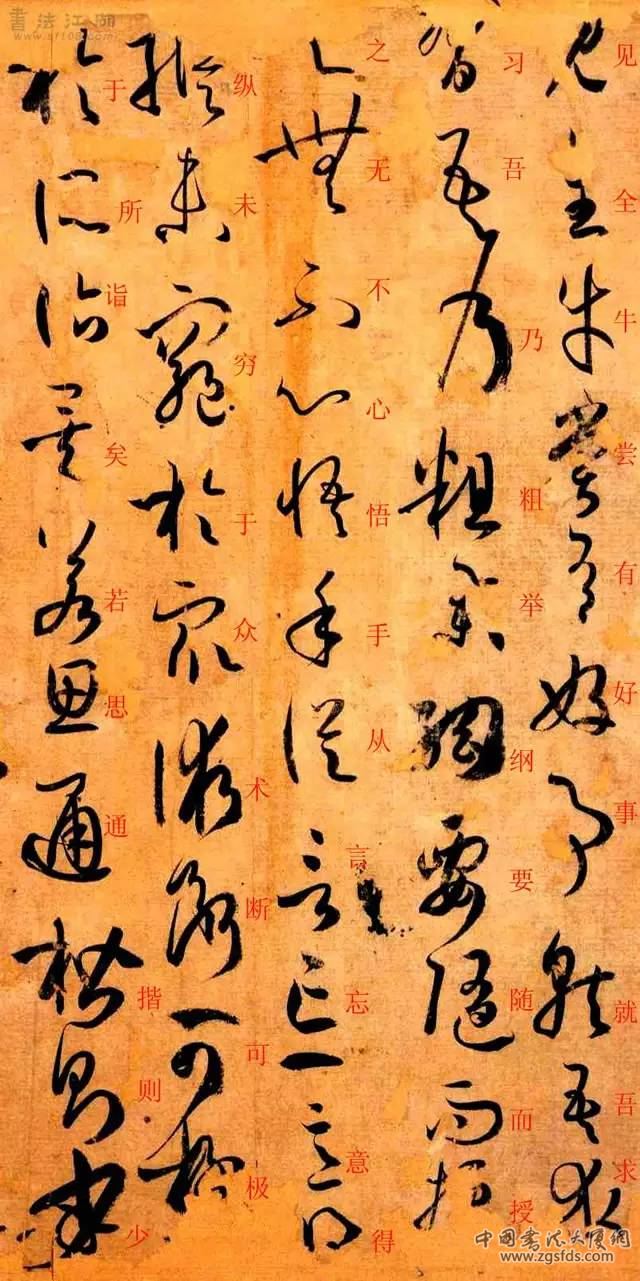 見全牛嘗有好事就吾求
见全牛尝有好事就吾求
習吾乃粗舉綱要隨而授
习吾乃粗举纲要随而授
之無不心悟手從言忘意得
之无不心悟手从言忘意得
縱未窮於眾術斷可極
纵未穷于众术断可极
於所詣矣若思通楷則少
于所诣矣若思通揩则少
書法江湖
www.sf108.com
中国書法大厦網
www.zgsfds.com